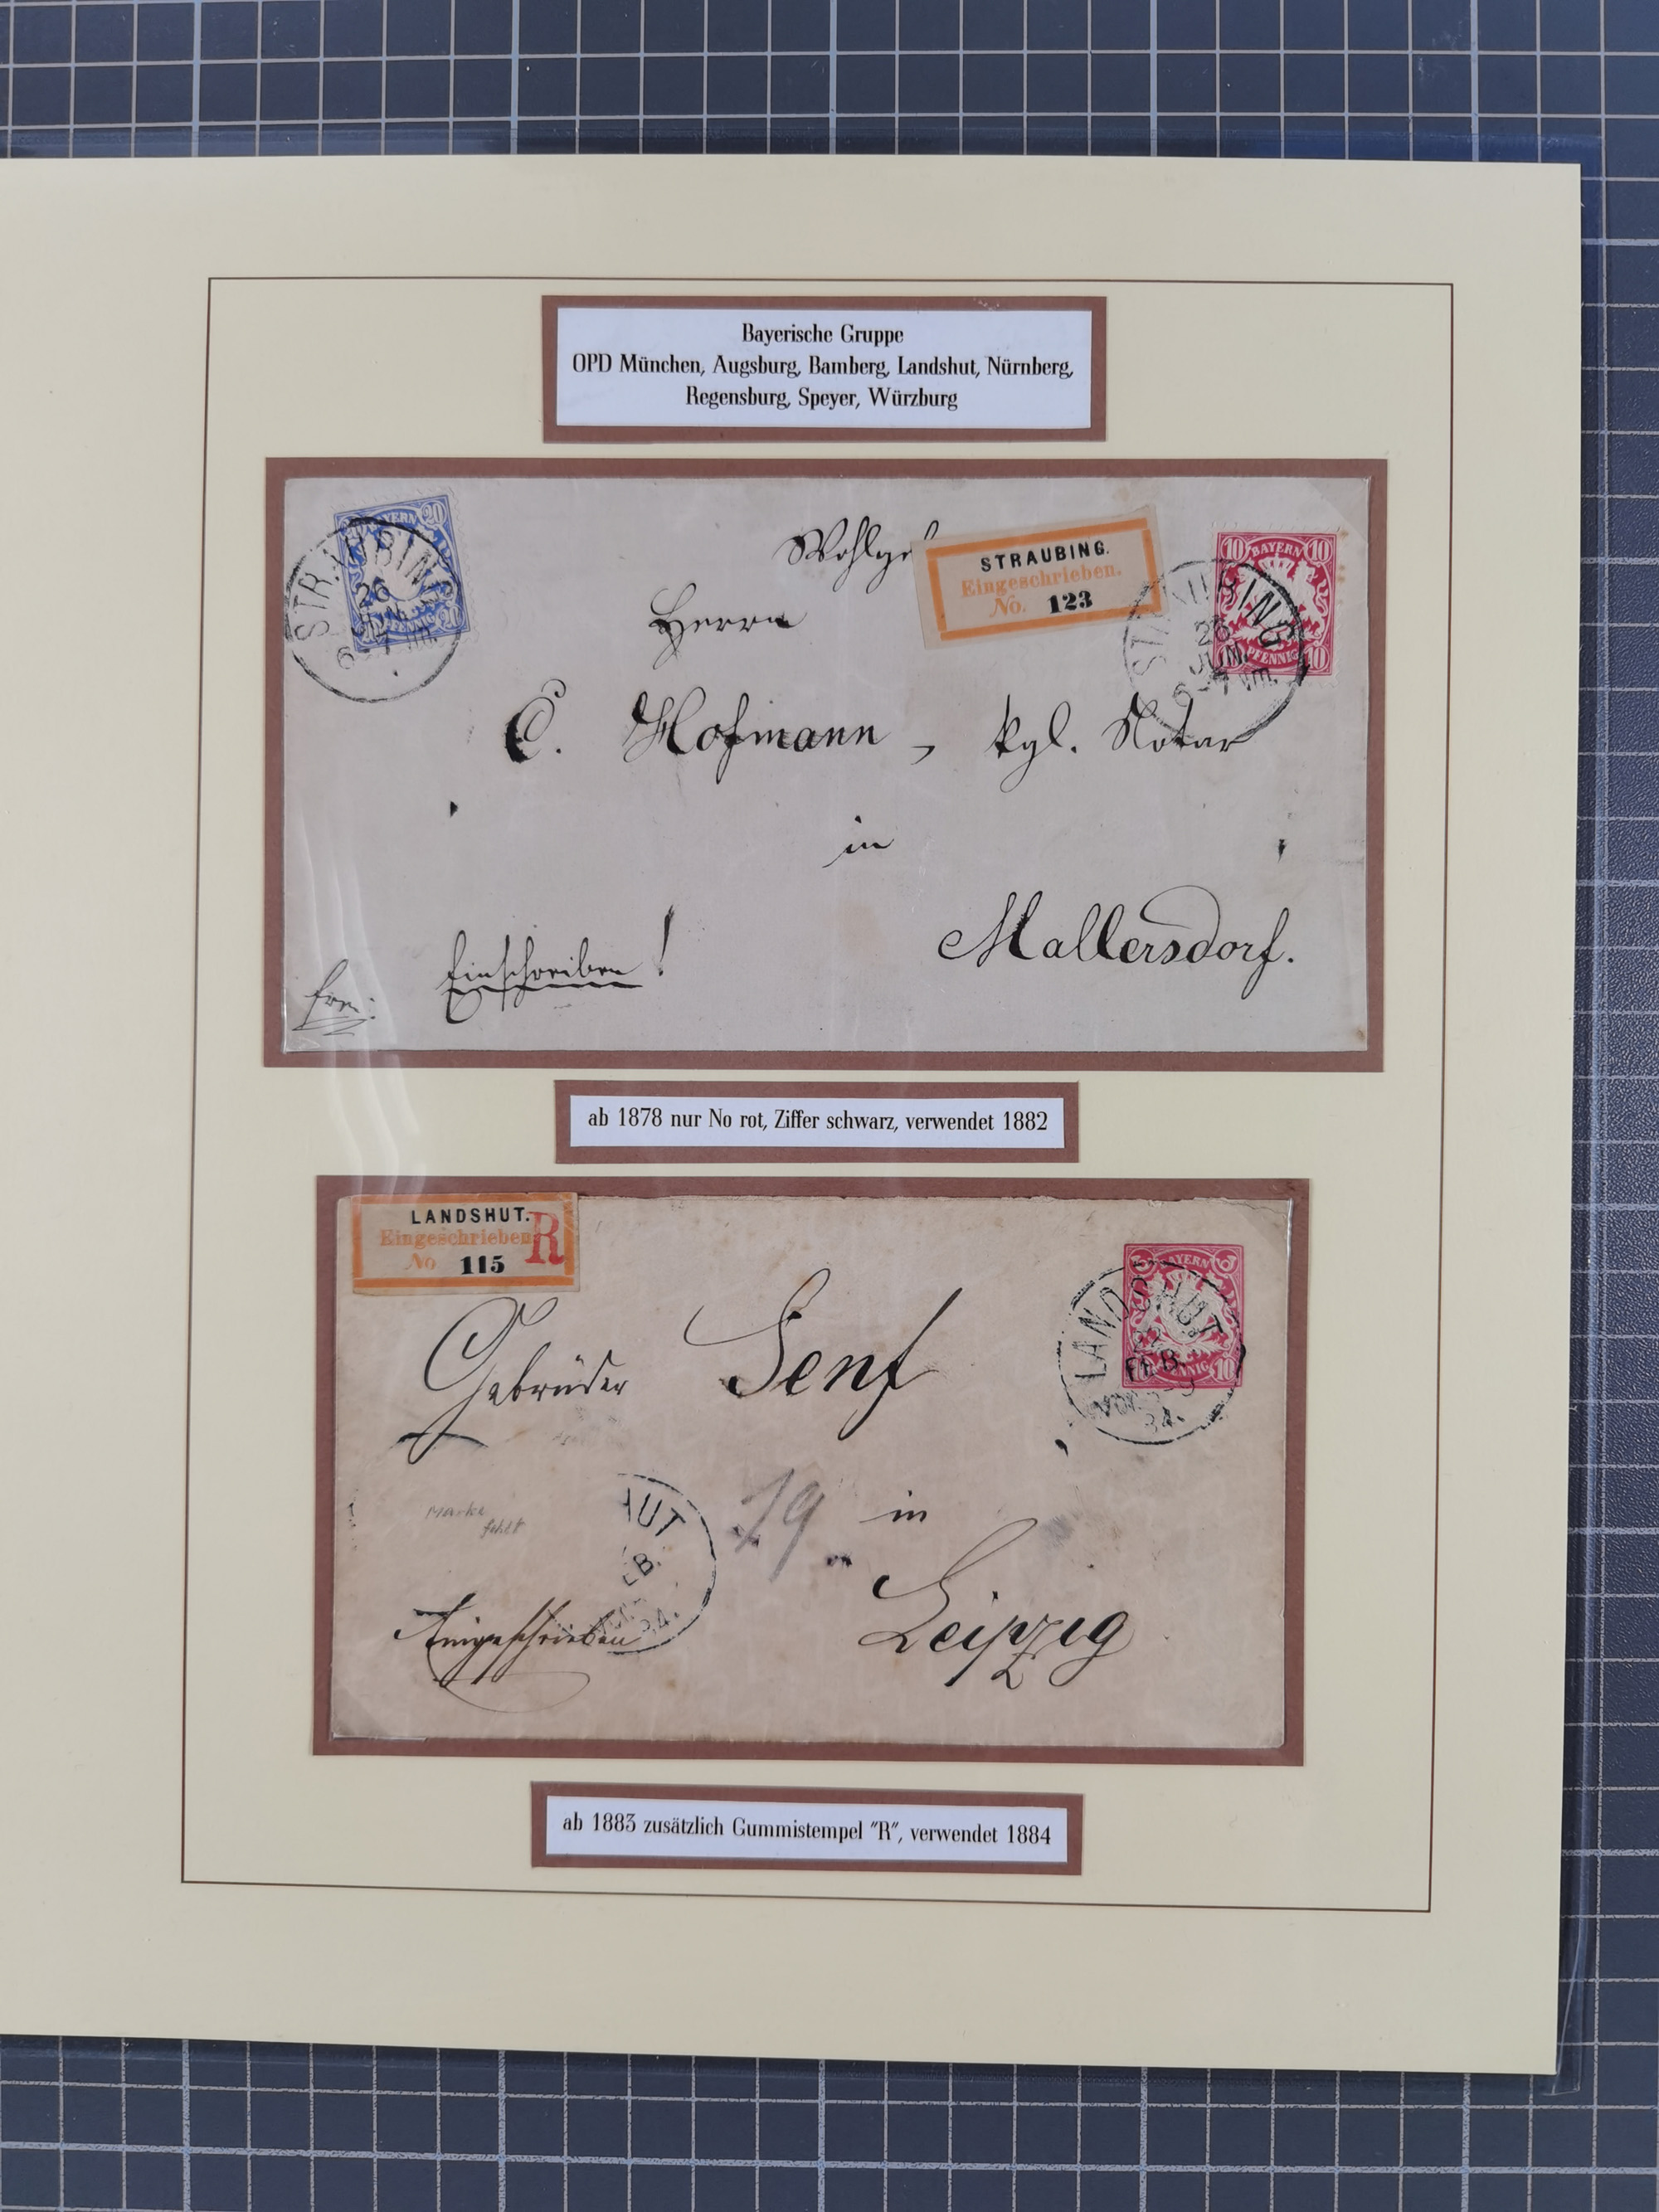 Bayerische Gruppe
OPD München, Augsburg, Bamberg, Landshut, Nürnberg,
Regensburg, Speyer, Würzburg
20 BAYERN 20
PFENNIG 20
STRAUBING
26
JUN.
6-7 Nm.
Wohlge
STRAUBING.
Eingeschrieben.
No. 123
10 BAYERN 10
PFENNIG 10
STRAUBING
26
JUN.
6-7 Nm.
Herrn
Hofmann, kgl. Notar
in
Mallersdorf.
Einschreiben!
frei:
ab 1878 nur No rot, Ziffer schwarz, verwendet 1882
LANDSHUT.
Eingeschrieben R
No 115
BAYERN
10 PFENNIG 10
LANDSHUT
FEB.
84.
Gebrüder Senf
Marke
fehlt
HUT
EB.
84.
19
in
Leipzig
Eingeschrieben
ab 1883 zusätzlich Gummistempel "R", verwendet 1884